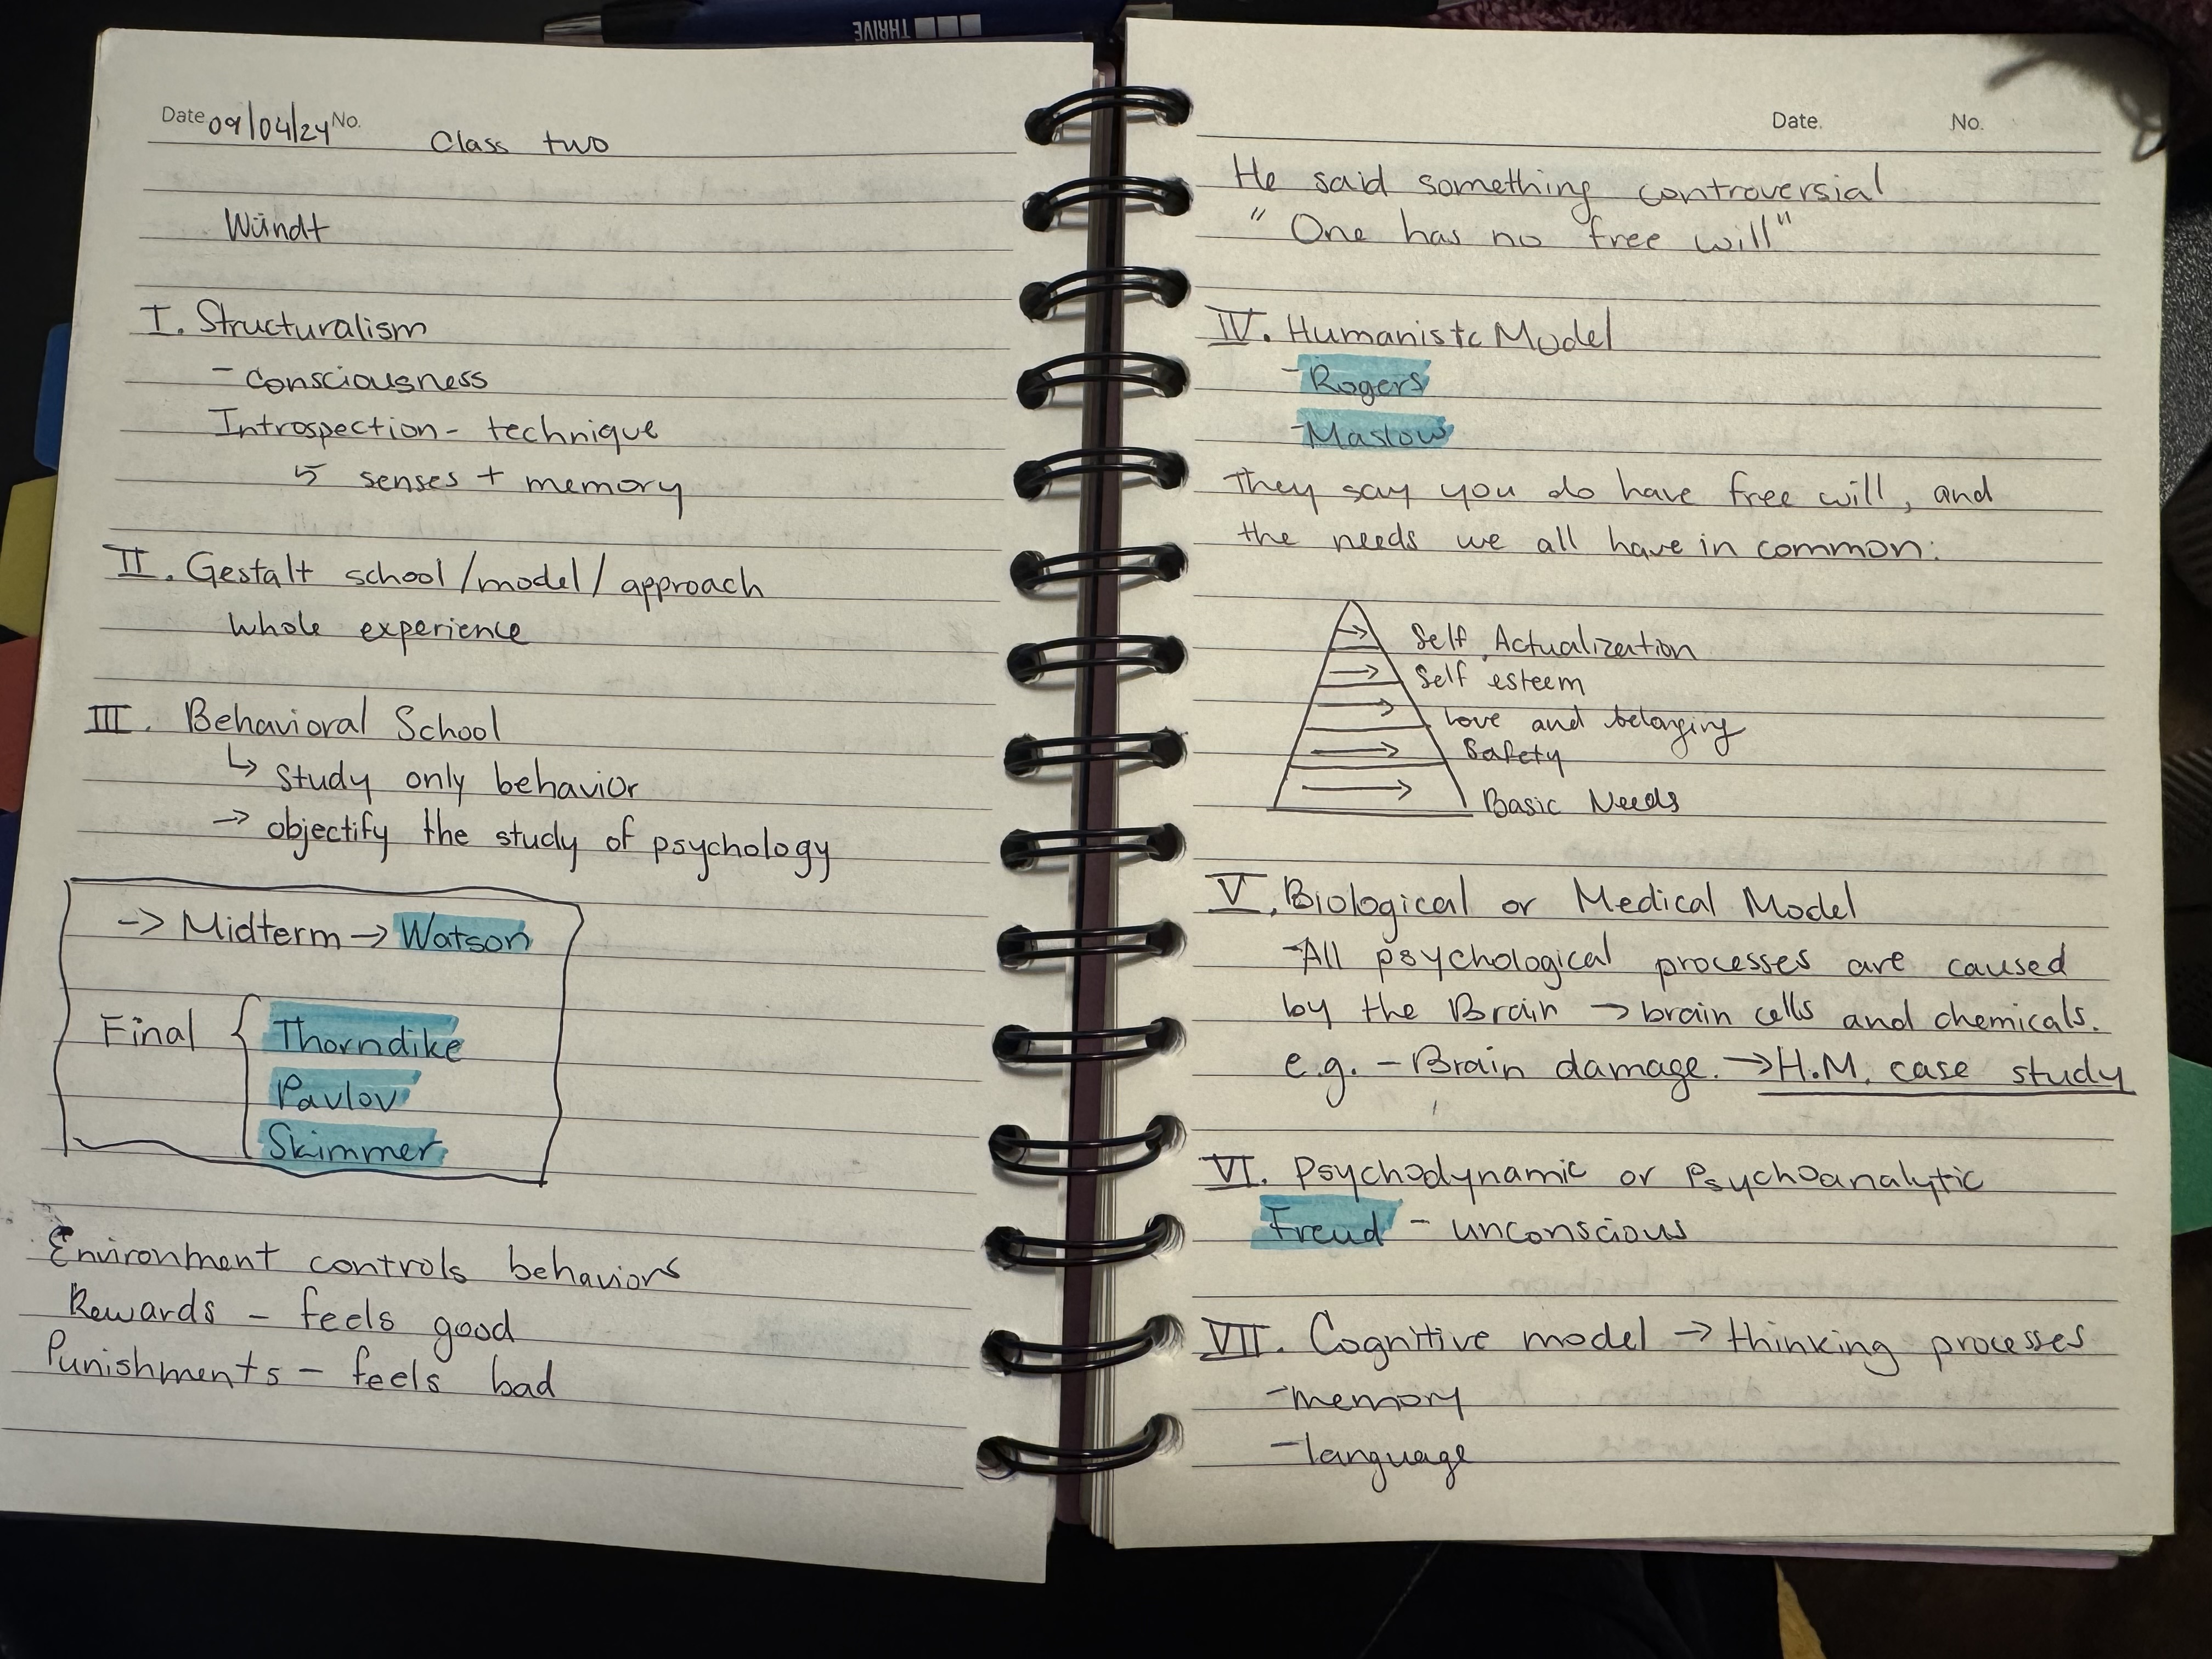 THRIVE
Date 09/04/24 No.
Class two
Wündt
I. Structuralism
- consciousness
Introspection - technique
5 senses + memory
II. Gestalt school/model/approach
Whole experience
III. Behavioral School
↳ study only behavior
→ objectify the study of psychology
→ Midterm → Watson
Final { Thorndike
Pavlov
Skimmer
Environment controls behaviors
Rewards - feels good
Punishments - feels bad
Date. No.
He said something controversial
"One has no free will"
IV. Humanistc Model
- Rogers
- Maslow
They say you do have free will, and
the needs we all have in common:
→ Self Actualization
→ Self esteem
→ Love and belonging
→ Safety
→ Basic Needs
V. Biological or Medical Model
- All psychological processes are caused
by the Brain → brain cells and chemicals.
e.g. - Brain damage. → H.M. case study
VI. Psychodynamic or Psychoanalytic
Freud - unconscious
VII. Cognitive model → thinking processes
- memory
- language